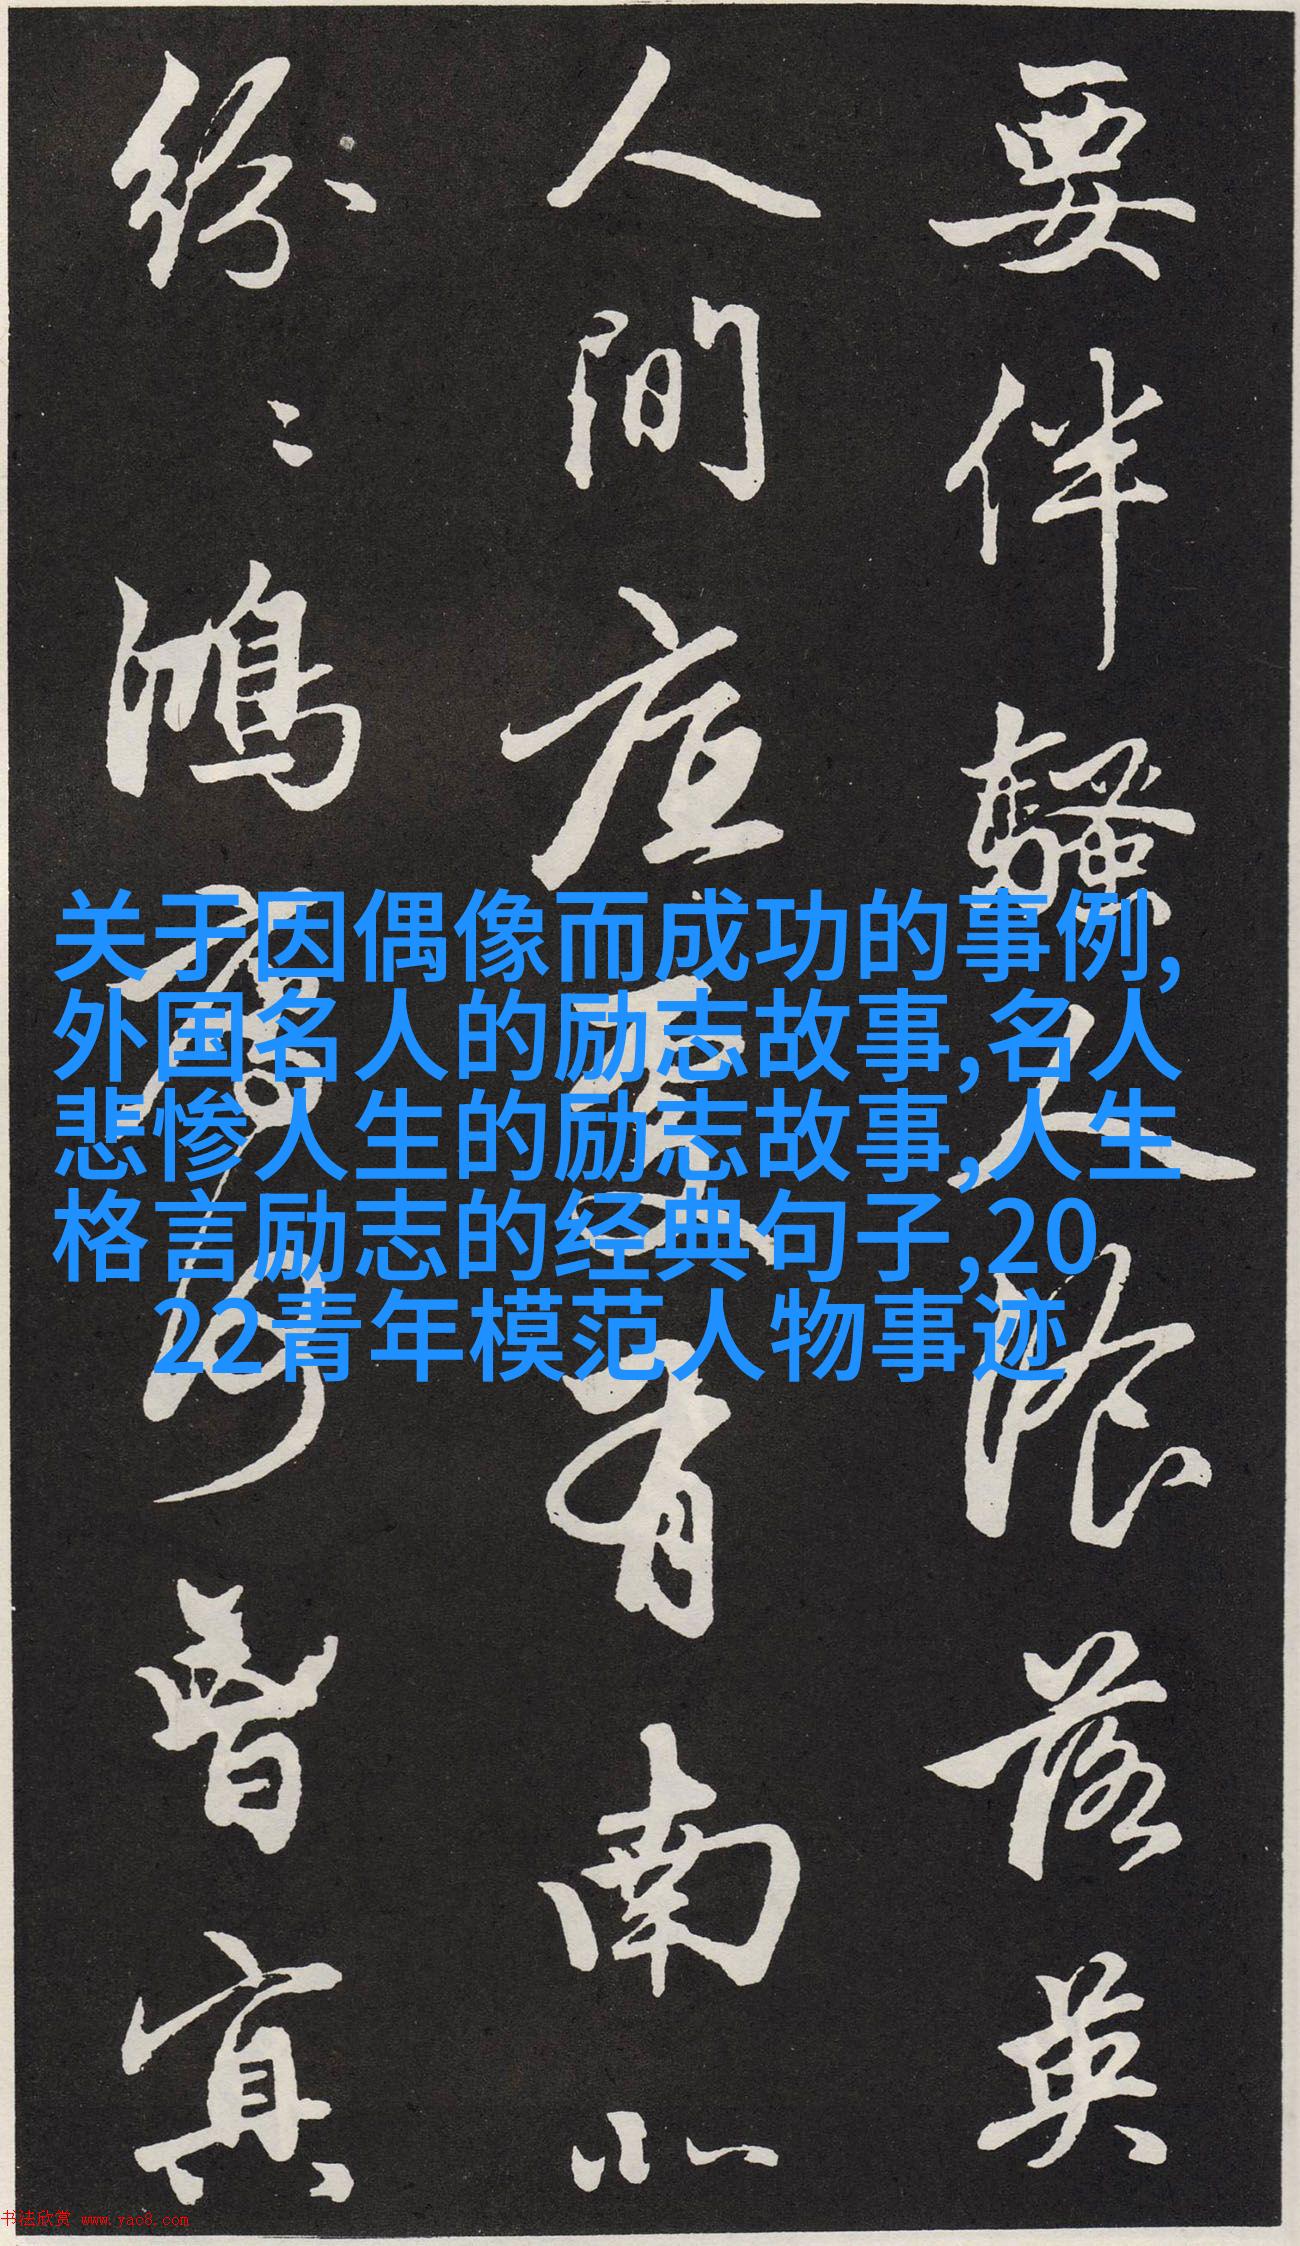 要伴騷人餐落英
人間底處有南北
紛〻鴻鴈何曾冥
关于因偶像而成功的事例,
外国名人的励志故事,名人
悲惨人生的励志故事,人生
格言励志的经典句子,20
22青年模范人物事迹
书法欣赏 www.yac8.com